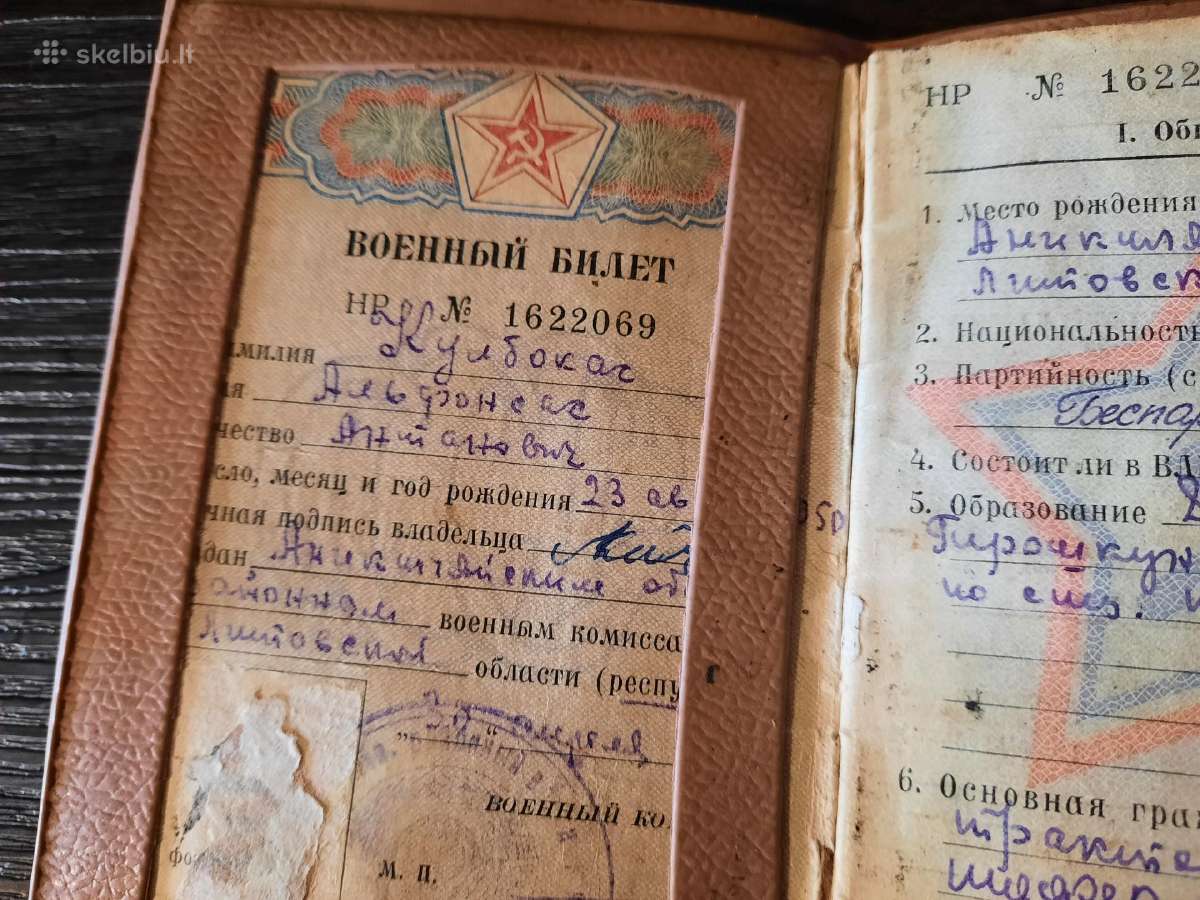 skelbiu.lt
ВОЕННЫЙ БИЛЕТ
НР № 1622069
амилия Кулбокас
я Альфонсас
чество Антанович
сло, месяц и год рождения 23 ав
чная подпись владельца
дан Аникщяйским об
айонным военным комисса
Литовской области (респу
30 апреля
ВОЕННЫЙ КО
М. П.
НР № 1622
I. Общ
1. Место рождения
Аникщя
Литовск
2. Национальность
3. Партийность (с
Беспар
4. Состоит ли в ВЛ
5. Образование
по спец.
6. Основная граж
тракто